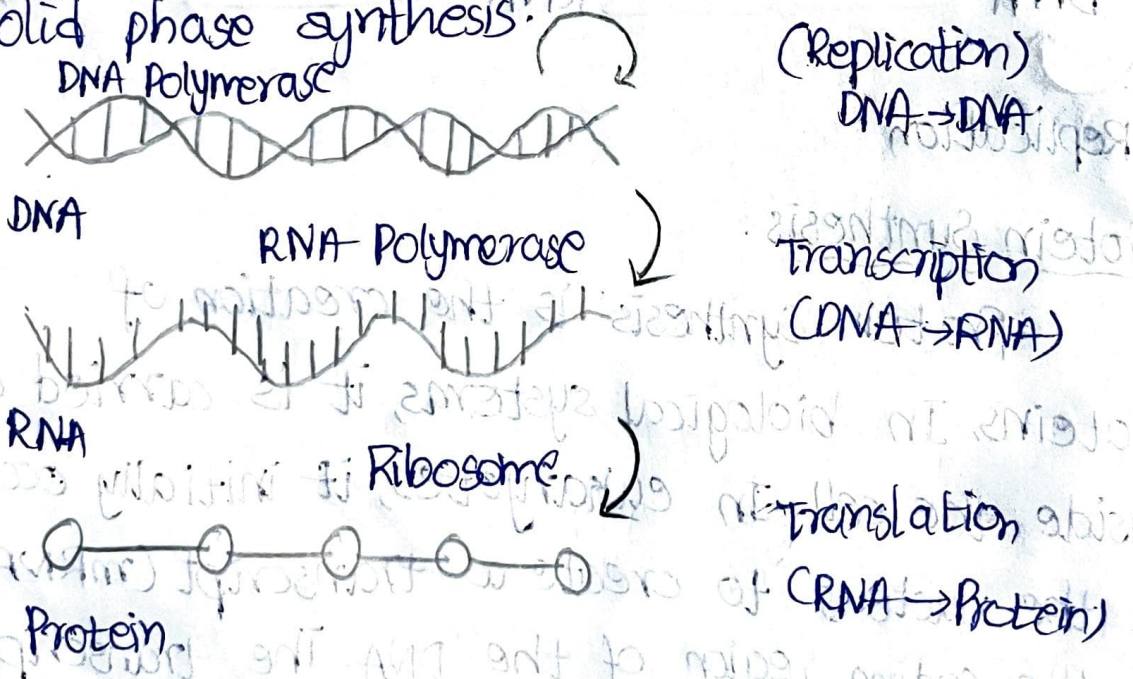 olid phase synthesis.
DNA Polymerase
(Replication)
DNA → DNA
DNA
RNA Polymerase
Transcription
(DNA → RNA)
RNA
Ribosome
Translation
(RNA → Protein)
Protein.